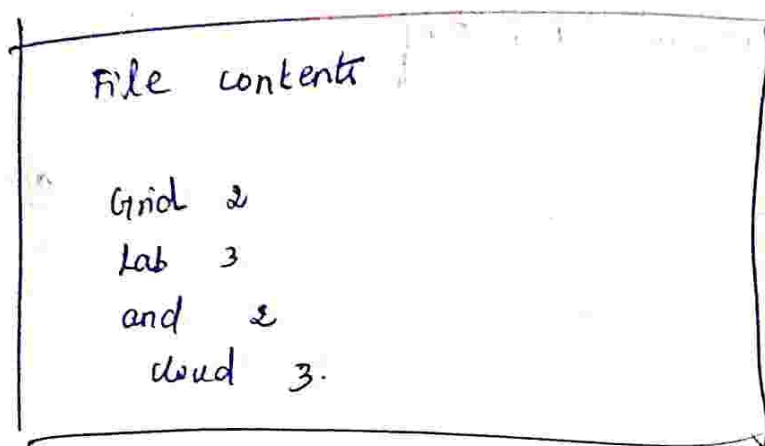 File contents
Grid 2
Lab 3
and 2
cloud 3.